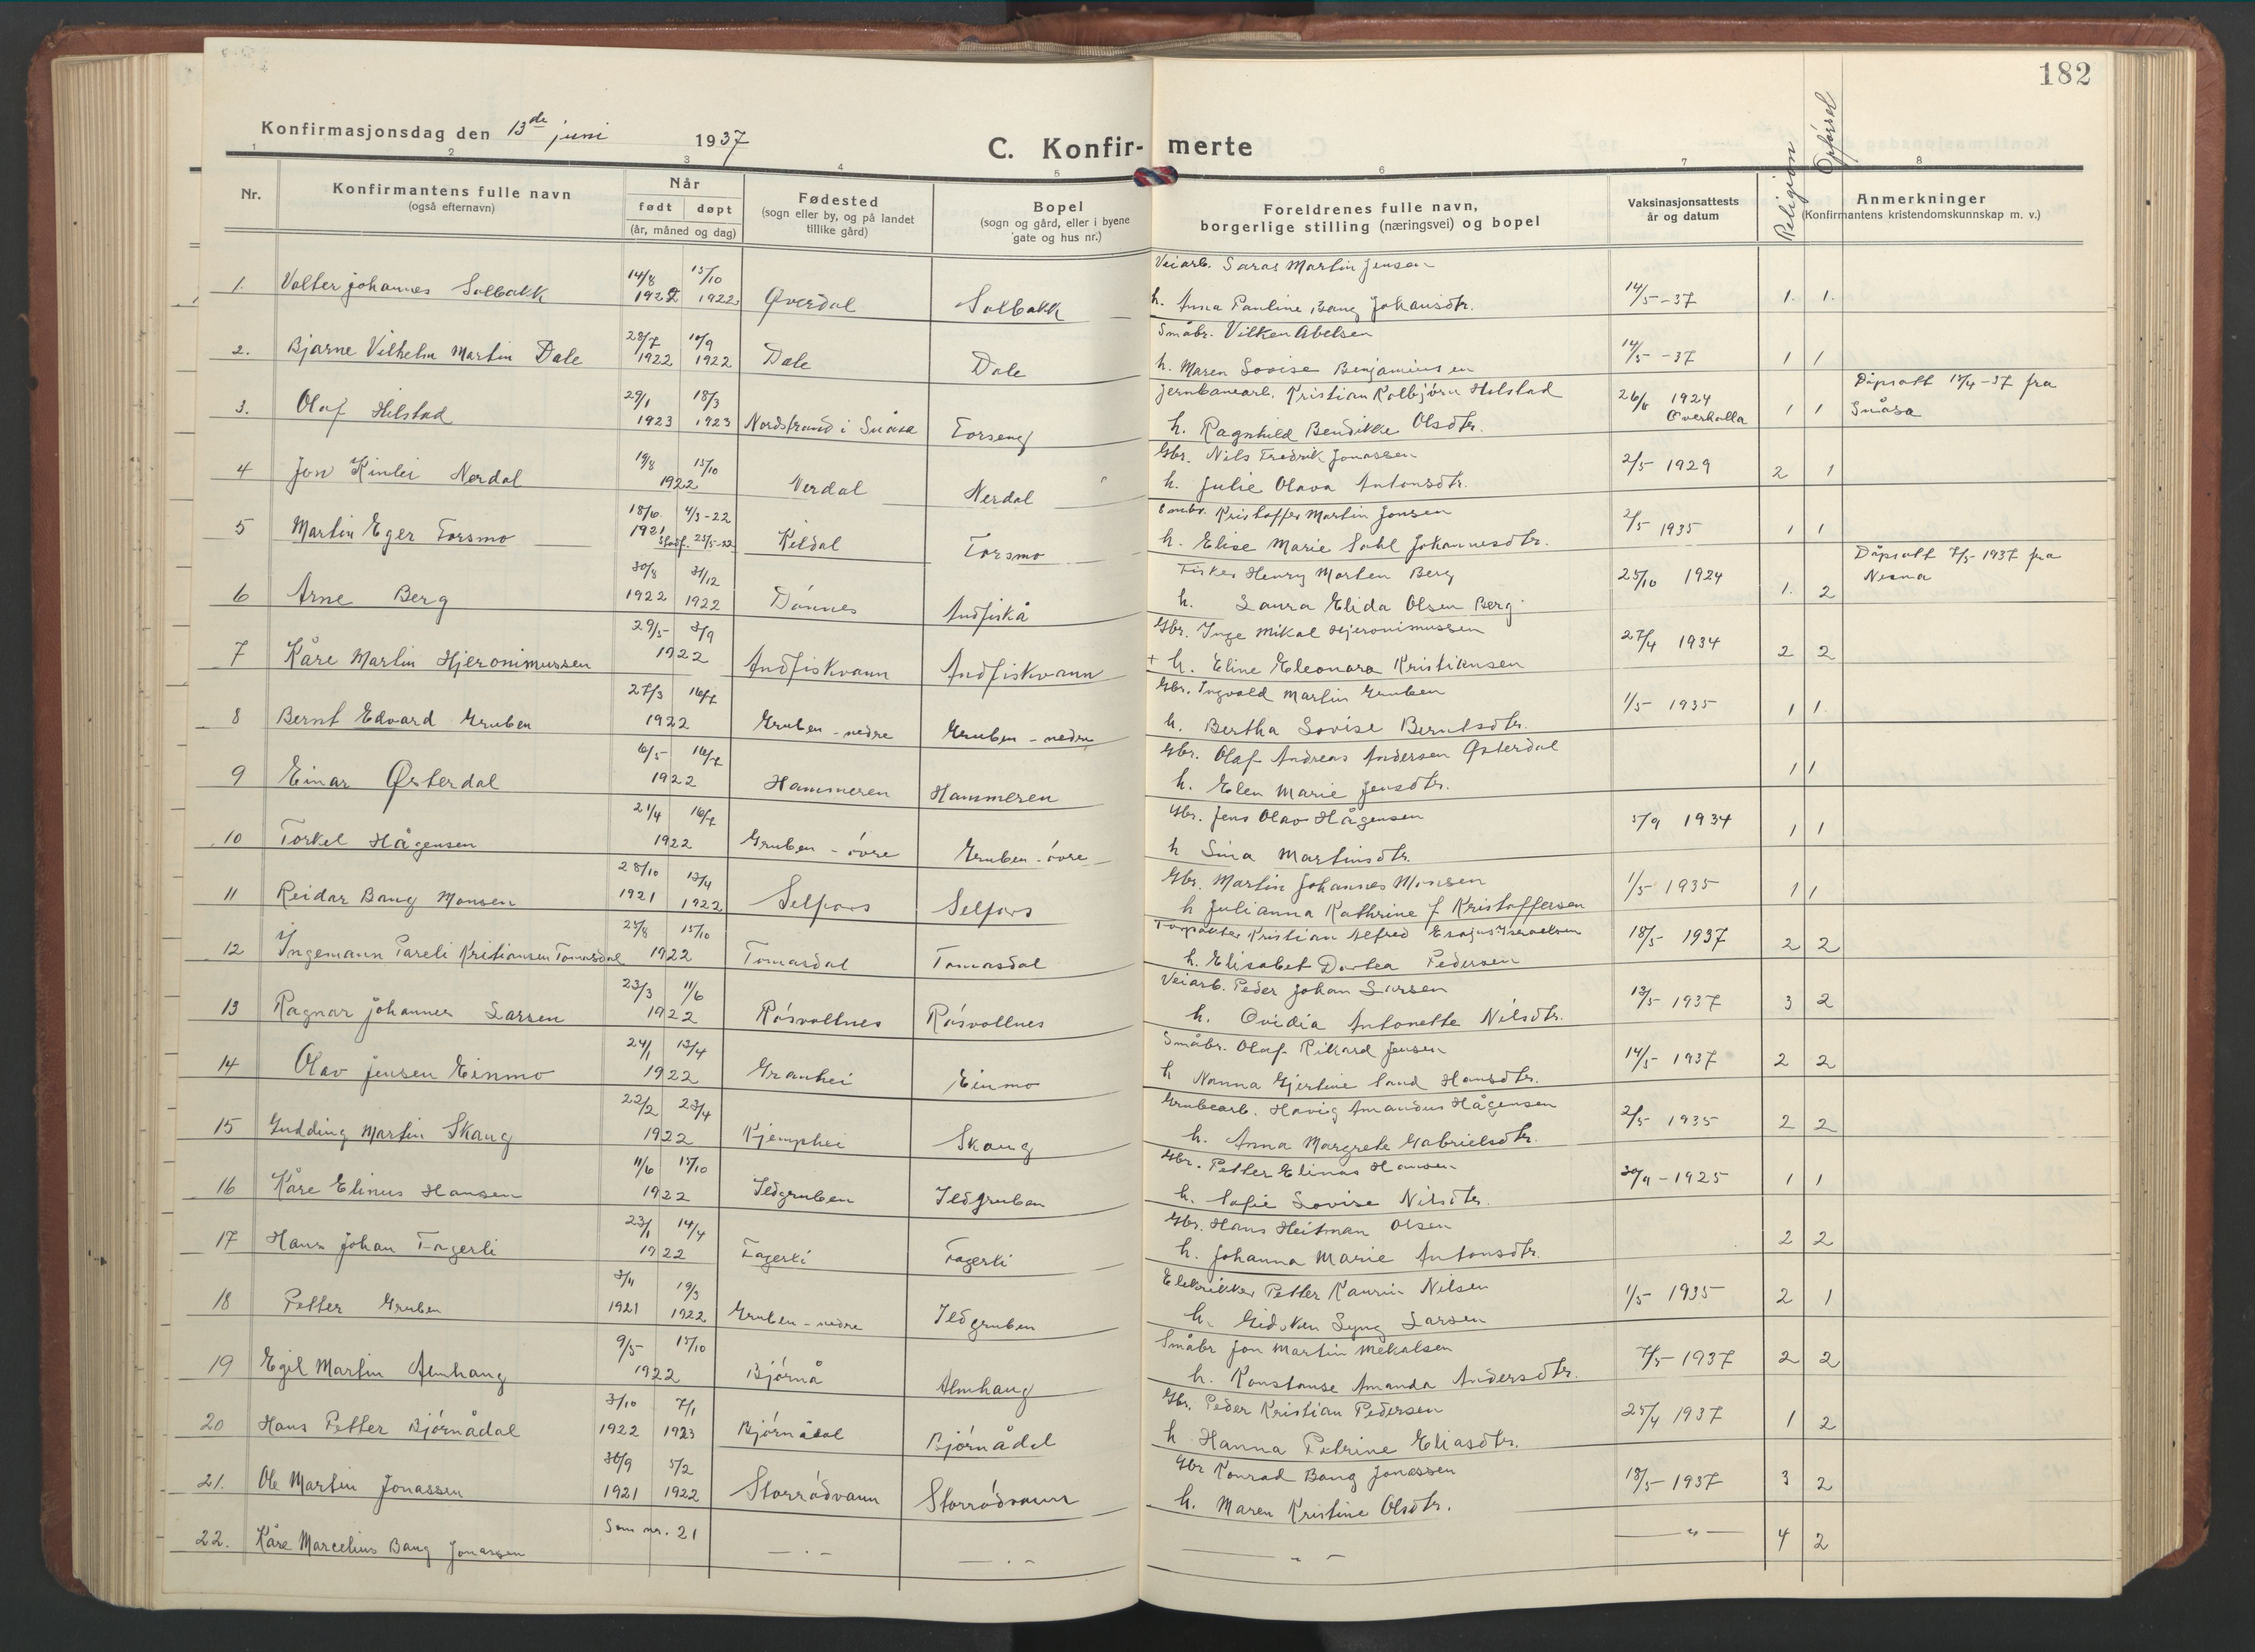 182
Konfirmasjonsdag den 13de juni 1937
C. Konfir- merte
Religion
Opførsel
1 2 3 4 5 6 7 8
Nr.
Konfirmantens fulle navn
(også efternavn)
Når
født døpt
(år, måned og dag)
Fødested
(sogn eller by, og på landet
tillike gård)
Bopel
(sogn og gård, eller i byene
gate og hus nr.)
Foreldrenes fulle navn,
borgerlige stilling (næringsvei) og bopel
Vaksinasjonsattests
år og datum
Anmerkninger
(Konfirmantens kristendomskunnskap m. v.)
14/8 15/10 Veiarb. Saras Martin Jensen
1. Valter Johannes Solbakk 1922 1922 Øverdal Solbakk h. Anna Pauline Bang Johansdtr. 14/5-37 1. 1.
28/7 10/9 Småbr. Vilken Abelsen
2. Bjarne Vilhelm Martin Dale 1922 1922 Dale Dale h. Maren Lovise Benjaminsen 14/5-37 1 1
29/1 18/3 Jernbanearb. Kristian Kolbjørn Hilstad 1924 Dåpsatt 12/4-37 fra
3. Olaf Hilstad 1923 1923 Nordstrand i Snåsa Forseng h. Ragnhild Bendikke Olsdtr. Overhalla 1 1 Snåsa
19/8 15/10 Gbr. Nils Fredrik Jonassen
4 Jon Kinlei Nerdal 1922 Nerdal Nerdal h. Julie Olava Antonsdtr. 2/5 1929 2 1
18/6 4/3-22 Småbr. Kristoffer Martin Jonsen
5 Martin Eger Forsmo 1921 Stadf. 25/5-22 Kildal Forsmo h. Elise Marie Dahl Johannesdtr. 2/5 1935 1 1
30/8 31/12 Fisker Henry Morten Berg Dåpsatt 7/5-1937 fra
6 Arne Berg 1922 1922 Dønnes Andfiskå h. Laura Elida Olsen Berg 25/10 1924 1. 2 Nesna
29/5 3/9 Gbr. Inge Mikal Hjeronimussen
7 Kåre Martin Hjeronimussen 1922 Andfiskvann Andfiskvann + h. Eline Eleonara Kristiansen 27/4 1934 2 2
27/3 16/7 Gbr. Ingvald Martin Gruben
8 Bernt Edvard Gruben 1922 Gruben - nedre Gruben - nedre h. Bertha Lovise Berntsdtr. 1/5 1935 1 1.
6/5 16/7 Gbr. Olaf Andreas Andersen Østerdal
9 Einar Østerdal 1922 Hammeren Hammeren h. Elen Marie Jensdtr. 1 1
21/4 16/7 Gbr. Jens Olav Hågensen
10 Torkel Hågensen 1922 Gruben - øvre Gruben - øvre h Sina Martinsdtr. 5/9 1934 1 1
28/10 17/4 Gbr. Martin Johannes Monsen
11 Reidar Bang Monsen 1921 1922 Selfors Selfors h Julianna Kathrine f Kristoffersen 1/5 1935 1 1
25/8 15/10 Kristian Alfred Esajas Israelsen
12 Ingemann Pareli Kristiansen Tomasdal 1922 Tomasdal Tomasdal h. Elisabet Dortea Pedersen 18/5 1937 2 2
23/3 11/6 Veiarb. Peder Johan Larsen
13 Ragnar Johannes Larsen 1922 Røsvollnes Røsvollnes h. Ovidia Antonette Nilsdtr. 13/5 1937 3 2
24/1 17/4 Småbr. Olaf Rikard Jensen
14 Olav Jensen Einmo 1922 Granhei Einmo h Nanna Gjertine Sand Hansdtr. 14/5 1937 2 2
22/2 23/4 Grubearb. Havig Amandus Hågensen
15 Gudding Martin Skaug 1922 Kjemphei Skaug h. Anna Margrete Gabrielsdtr. 2/5 1935 2 2
11/6 15/10 Gbr. Petter Elinas Hansen
16 Kåre Elinus Hansen 1922 Ildgruben Ildgruben h. Sofie Lovise Nilsdtr. 30/9-1925 1 1
23/1 14/4 Gbr. Hans Heitman Olsen
17 Hans Johan Fagerli 1922 Fagerli Fagerli h. Johanna Marie Antonsdtr. 2 2
3/11 19/3 Elektriker Petter Kaurin Nilsen
18 Petter Gruben 1921 1922 Gruben - nedre Ildgruben h. Gidsken Lyng Larsen 1/5 1935 2 1
9/5 15/10 Småbr Jon Martin Mekalsen
19 Egil Martin Almhaug 1922 Bjørnå Almhaug h. Konstanse Amanda Andersdtr. 7/5-1937 2 2
3/10 7/1 Gbr. Peder Kristian Pedersen
20 Hans Petter Bjørnådal 1922 1923 Bjørnådal Bjørnådal h Hanna Petrine Eliasdtr. 25/4 1937 1 2
30/9 5/2 Gbr Konrad Bang Jonassen
21. Ole Martin Jonassen 1921 1922 Storrødvann Storrødvann h. Maren Kristine Olsdtr. 18/5-1937 3 2
22. Kåre Marcelius Bang Jonassen Som nr. 21 — . — — . — — " — — " — 4 2